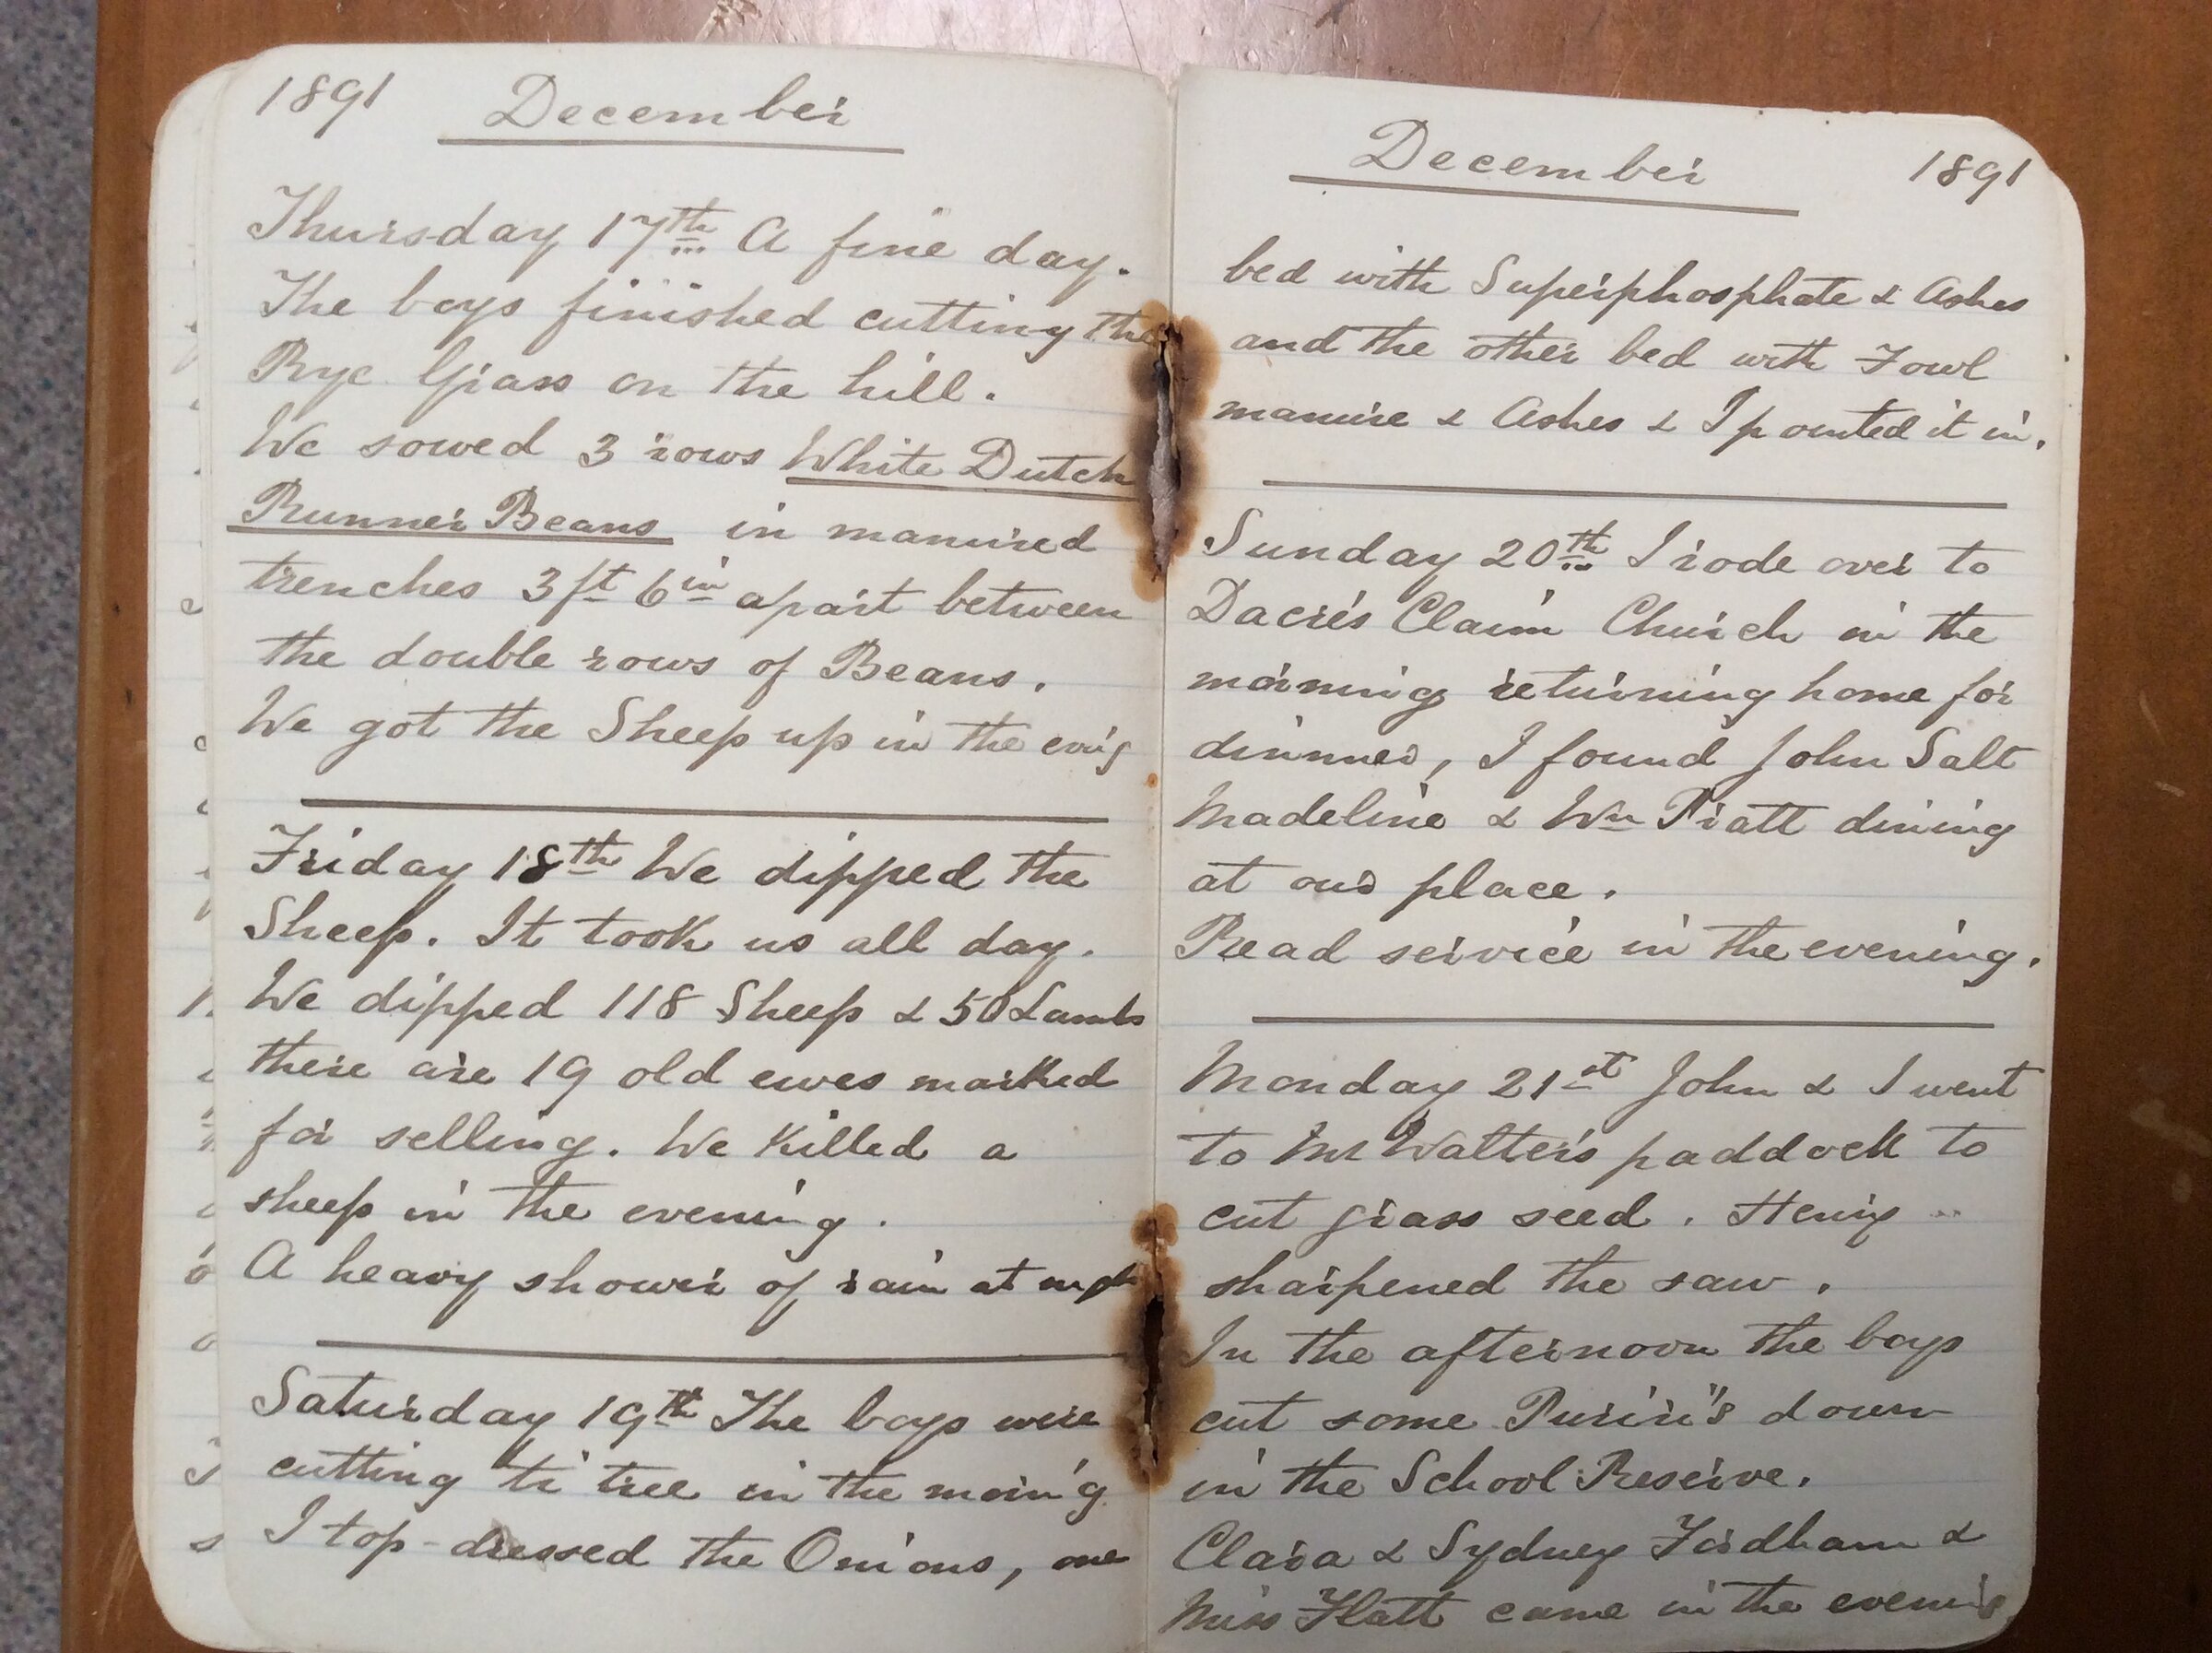 1891 December
Thursday 17th A fine day.
The boys finished cutting the
Rye Grass on the hill.
We sowed 3 rows White Dutch
Runner Beans in manured
trenches 3 ft 6 in apart between
the double rows of Beans.
We got the Sheep up in the ev'g
Friday 18th We dipped the
Sheep. It took us all day.
We dipped 118 Sheep & 50 Lambs
there are 19 old ewes marked
for selling. We Killed a
sheep in the evening.
A heavy shower of rain at night
Saturday 19th The boys were
cutting ti tree in the morn'g
I top-dressed the Onions, one
December 1891
bed with Superphosphate & Ashes
and the other bed with Fowl
manure & Ashes & I pointed it in.
Sunday 20th I rode over to
Dacre's Claim Church in the
morning returning home for
dinner, I found John Salt
Madeline & Wm Pratt dining
at our place.
Read service in the evening.
Monday 21st John & I went
to Mr Walter's paddock to
cut grass seed. Henry
sharpened the saw.
In the afternoon the boys
cut some Puriri's down
in the School Reserve.
Clara & Sydney Fordham &
Miss Flatt came in the evening